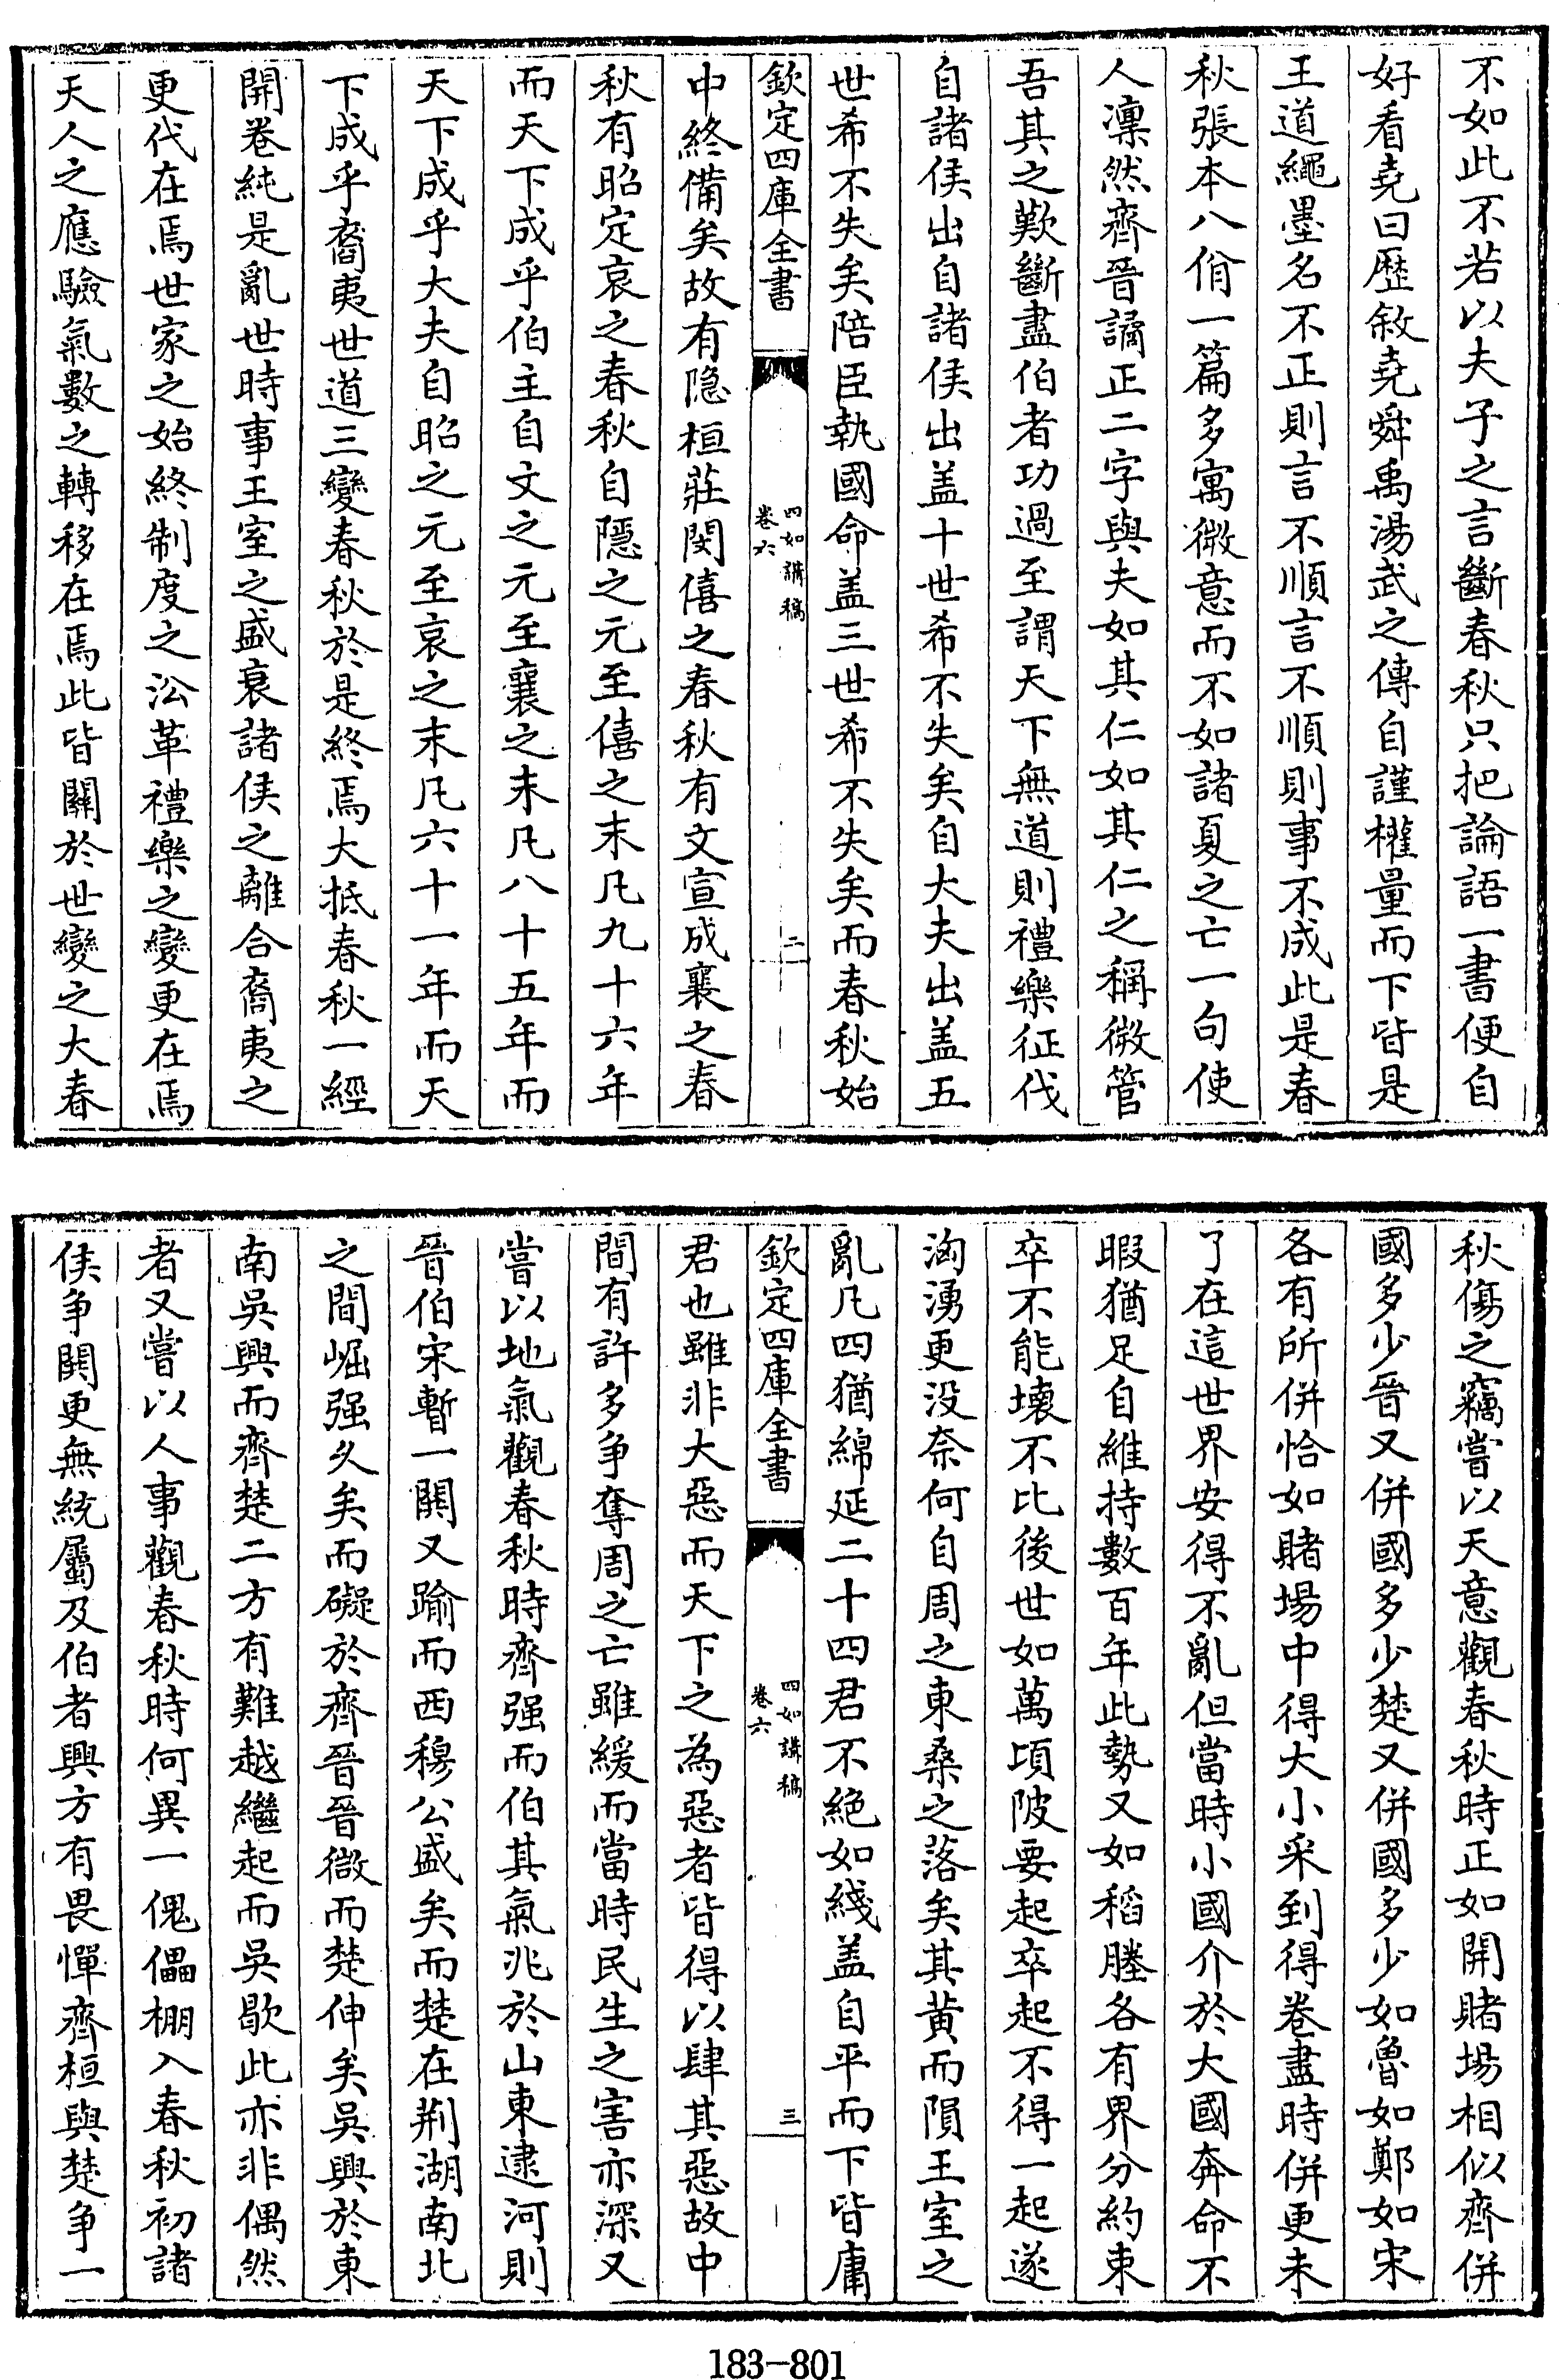 不如此不若以夫子之言斷春秋只把論語一書便自
好看堯曰歴敘堯舜禹湯武之傳自謹權量而下皆是
王道繩墨名不正則言不順言不順則事不成此是春
秋張本八佾一篇多寓微意而不如諸夏之亡一句使
人凜然齊晉譎正二字與夫如其仁如其仁之稱微管
吾其之歎斷盡伯者功過至謂天下無道則禮樂征伐
自諸侯出自諸侯出盖十世希不失矣自大夫出盖五
世希不失矣陪臣執國命盖三世希不失矣而春秋始
欽定四庫全書
四如講稿
卷六
二
中終備矣故有隐桓莊閔僖之春秋有文宣成襄之春
秋有昭定哀之春秋自隱之元至僖之末凡九十六年
而天下成乎伯主自文之元至襄之末凡八十五年而
天下成乎大夫自昭之元至哀之末凡六十一年而天
下成乎裔夷世道三變春秋於是終焉大抵春秋一經
開卷純是亂世時事王室之盛衰諸侯之離合裔夷之
更代在焉世家之始終制度之沿革禮樂之變更在焉
天人之應驗氣數之轉移在焉此皆關於世變之大春
秋傷之竊嘗以天意觀春秋時正如開賭場相似齊併
國多少晉又併國多少楚又併國多少如魯如鄭如宋
各有所併恰如賭場中得大小采到得卷盡時併更未
了在這世界安得不亂但當時小國介於大國奔命不
暇猶足自維持數百年此勢又如稻塍各有界分約束
卒不能壊不比後世如萬頃陂要起卒起不得一起遂
洶湧更没奈何自周之東桑之落矣其黄而隕王室之
亂凡四猶綿延二十四君不絶如綫盖自平而下皆庸
欽定四庫全書
四如講稿
卷六
三
君也雖非大惡而天下之為惡者皆得以肆其惡故中
間有許多争奪周之亡雖緩而當時民生之害亦深又
嘗以地氣觀春秋時齊强而伯其氣兆於山東逮河則
晉伯宋暫一鬨又踰而西穆公盛矣而楚在荆湖南北
之間崛强久矣而礙於齊晉晉微而楚伸矣吳興於東
南吳興而齊楚二方有難越繼起而吳歇此亦非偶然
者又嘗以人事觀春秋時何異一傀儡棚入春秋初諸
侯争鬨更無統屬及伯者興方有畏憚齊桓與楚争一
183-801